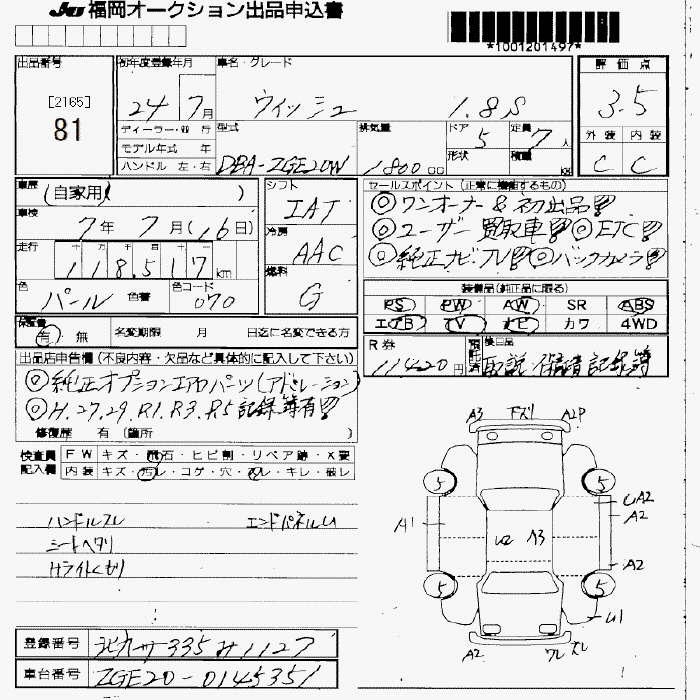 JU 福岡オークション出品申込書
*1001201497*
出品番号
[2165]
81
初年度登録年月
24年7月
車名・グレード
ウィッシュ 1.8S
評価点
3.5
外装 内装
C C
ディーラー・並行
モデル年式 年
ハンドル 左・右
型式
DBA-ZGE20W
排気量
1800 cc
ドア 5
形状
定員 7人
積載 KG
車歴
(自家用)
車検
7年7月(16日)
走行
十万千百十
118,517km
色
パール
色番
色コード
070
シフト
IAT
冷房
AAC
燃料
G
セールスポイント(正常に機能するもの)
◎ワンオーナー&初出品!!
◎ユーザー買取車!!◎ETC!!
◎純正ナビTV!!◎バックカメラ!!
装備品(純正品に限る)
PS PW AW SR ABS
エアB TV ナビ カワ 4WD
保証書
有 無
名変期限 月 日迄に名変できる方
R券
11420円
預託済
後日品
取説 保証書 記録簿
出品店申告欄(不良内容・欠品など具体的に記入して下さい)
◎純正オプションエアロパーツ(アドミレーション)
◎H.27.29.R1.R3.R5記録簿有!!
修復歴 有(箇所 )
検査員
記入欄
FW キズ・飛石・ヒビ割・リペア跡・X要
内装 キズ・汚レ・コゲ・穴・スレ・キレ・破レ
ハンドルスレ エンドパネルU
シートヘタリ
Hライトくもり
A3 下ズレ A2P
5 5
UA2
A1 A2
U2 A3
A2
5 5
U1
A2
登録番号
335 み1127
車台番号
ZGE20-0145351